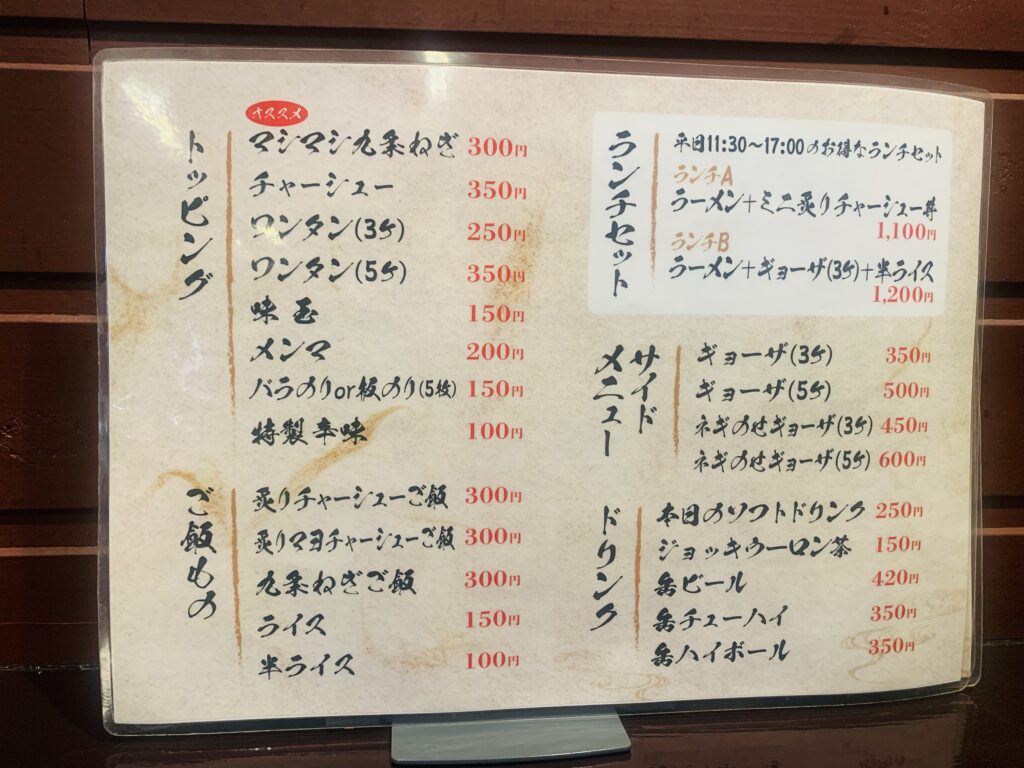 トッピング
オススメ
マシマシ九条ねぎ 300円
チャーシュー 350円
ワンタン(3ケ) 250円
ワンタン(5ケ) 350円
味玉 150円
メンマ 200円
バラのりor板のり(5枚) 150円
特製辛味 100円
ご飯もの
炙りチャーシューご飯 300円
炙りマヨチャーシューご飯 300円
九条ねぎご飯 300円
ライス 150円
半ライス 100円
ランチセット
平日11:30～17:00のお得なランチセット
ランチA
ラーメン+ミニ炙りチャーシュー丼
1,100円
ランチB
ラーメン+ギョーザ(3ケ)+半ライス
1,200円
サイド
メニュー
ギョーザ(3ケ) 350円
ギョーザ(5ケ) 500円
ネギのせギョーザ(3ケ) 450円
ネギのせギョーザ(5ケ) 600円
ドリンク
本日のソフトドリンク 250円
ジョッキウーロン茶 150円
缶ビール 420円
缶チューハイ 350円
缶ハイボール 350円